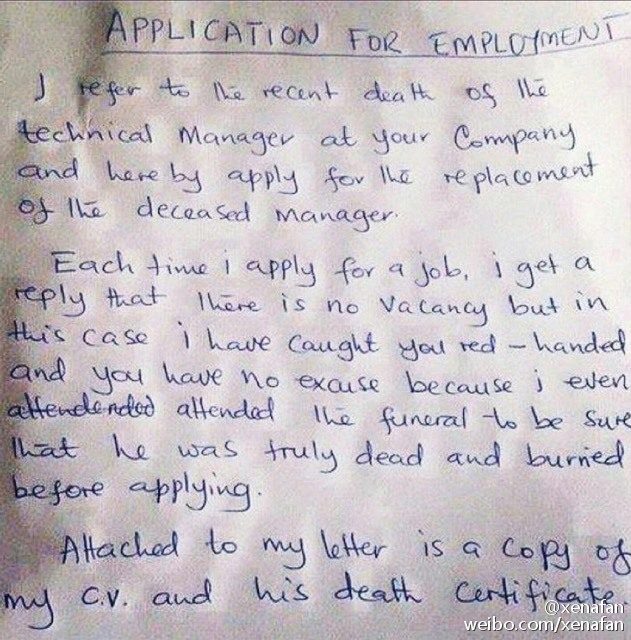 APPLICATION FOR EMPLOYMENT
I refer to the recent death of the
technical Manager at your Company
and here by apply for the replacement
of the deceased manager.
Each time i apply for a job, i get a
reply that there is no vacancy but in
this case i have caught you red-handed
and you have no excuse because i even
attended the funeral to be sure
that he was truly dead and burried
before applying.
Attached to my letter is a copy of
my C.V. and his death certificate.
@xenafan
weibo.com/xenafan